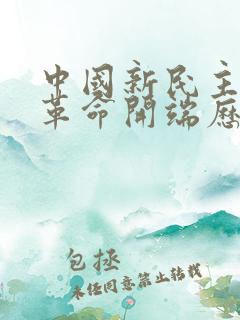 中國新民主
革命開端歷
包拯
未经同意禁止转载